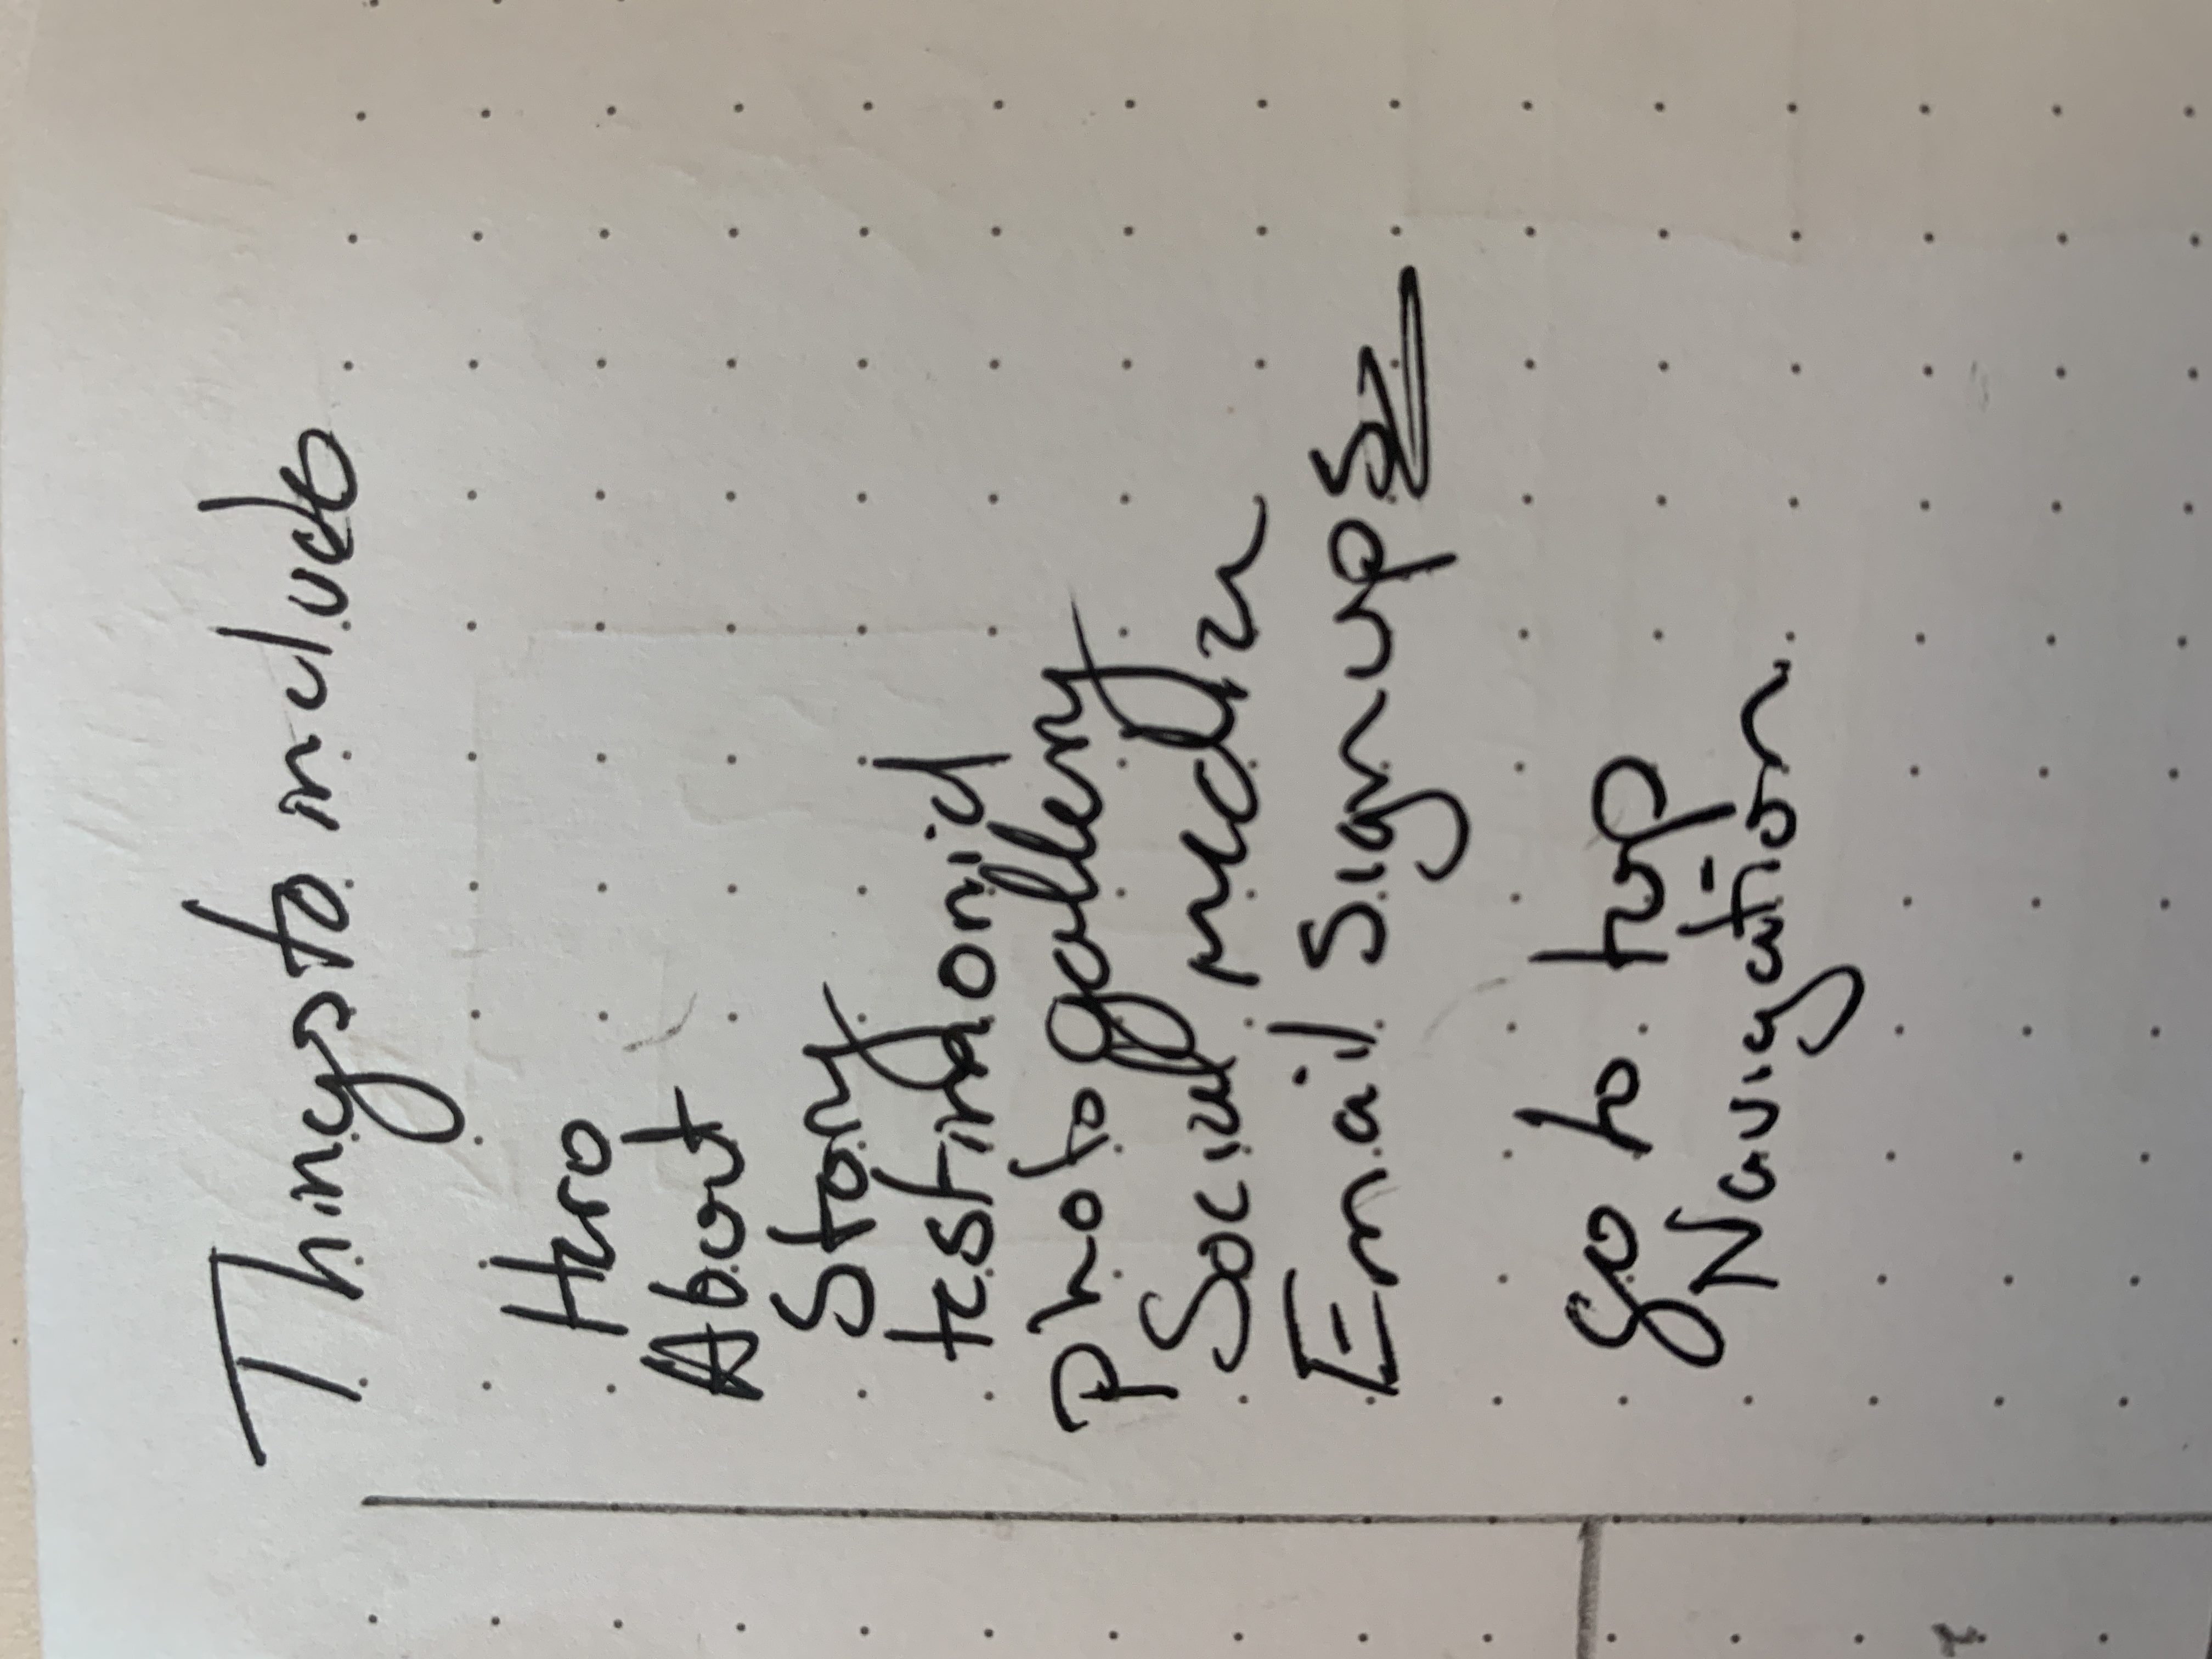 Things to include
Hero
About
Story
testimonial
photo gallery
Social media
Email signups
go to top
Navigation